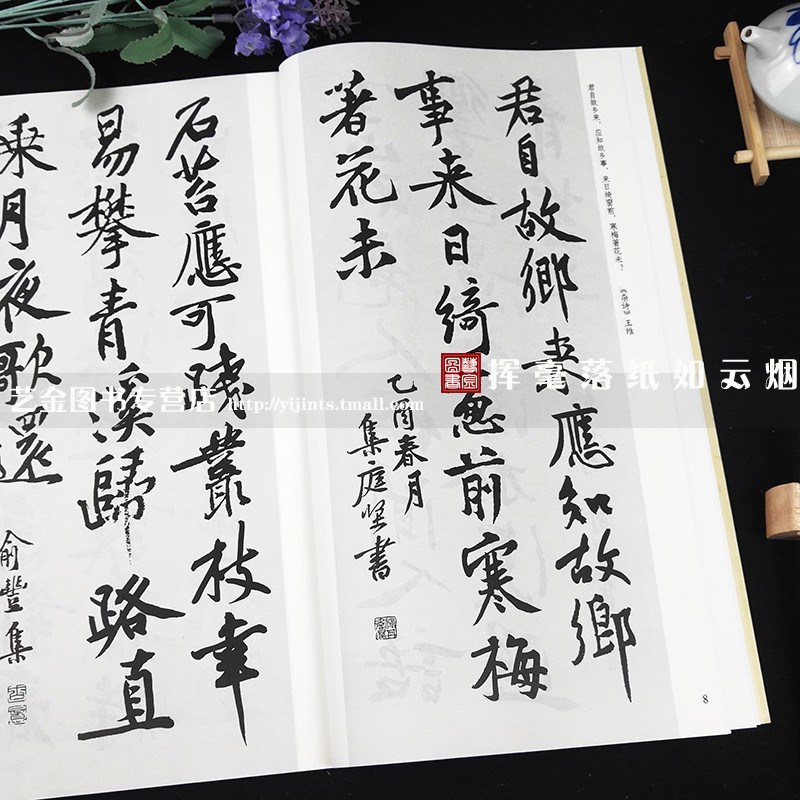 君自故乡来，应知故乡事。来日绮窗前，寒梅著花未？ 《杂诗》王维
君自故鄉来應知故鄉
事来日綺窻前寒梅
著花未
乙酉春月
集庭坚書
8
石苔應可踐叢枝幸
易攀青溪歸路直
乘月夜歌還
俞豐集
藝金圖書
挥毫落纸如云烟
艺金图书专营店 http://yijints.tmall.com